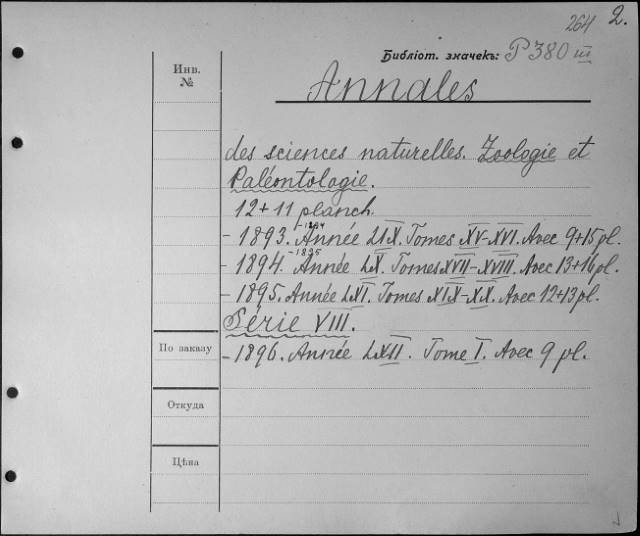 264 2.
Библіот. значекъ: P 380 III
Инв. №
Annales
des sciences naturelles. Zoologie et
Paléontologie.
12+11 planch.
-1894
- 1893. Année LIX. Tomes XV-XVI. Avec 9+15 pl.
-1895
- 1894. Année LX. Tomes XVII-XVIII. Avec 13+16 pl.
- 1895. Année LXI. Tomes XIX-XX. Avec 12+13 pl.
Série VIII.
По заказу
- 1896. Année LXII. Tome I. Avec 9 pl.
Откуда
Цѣна